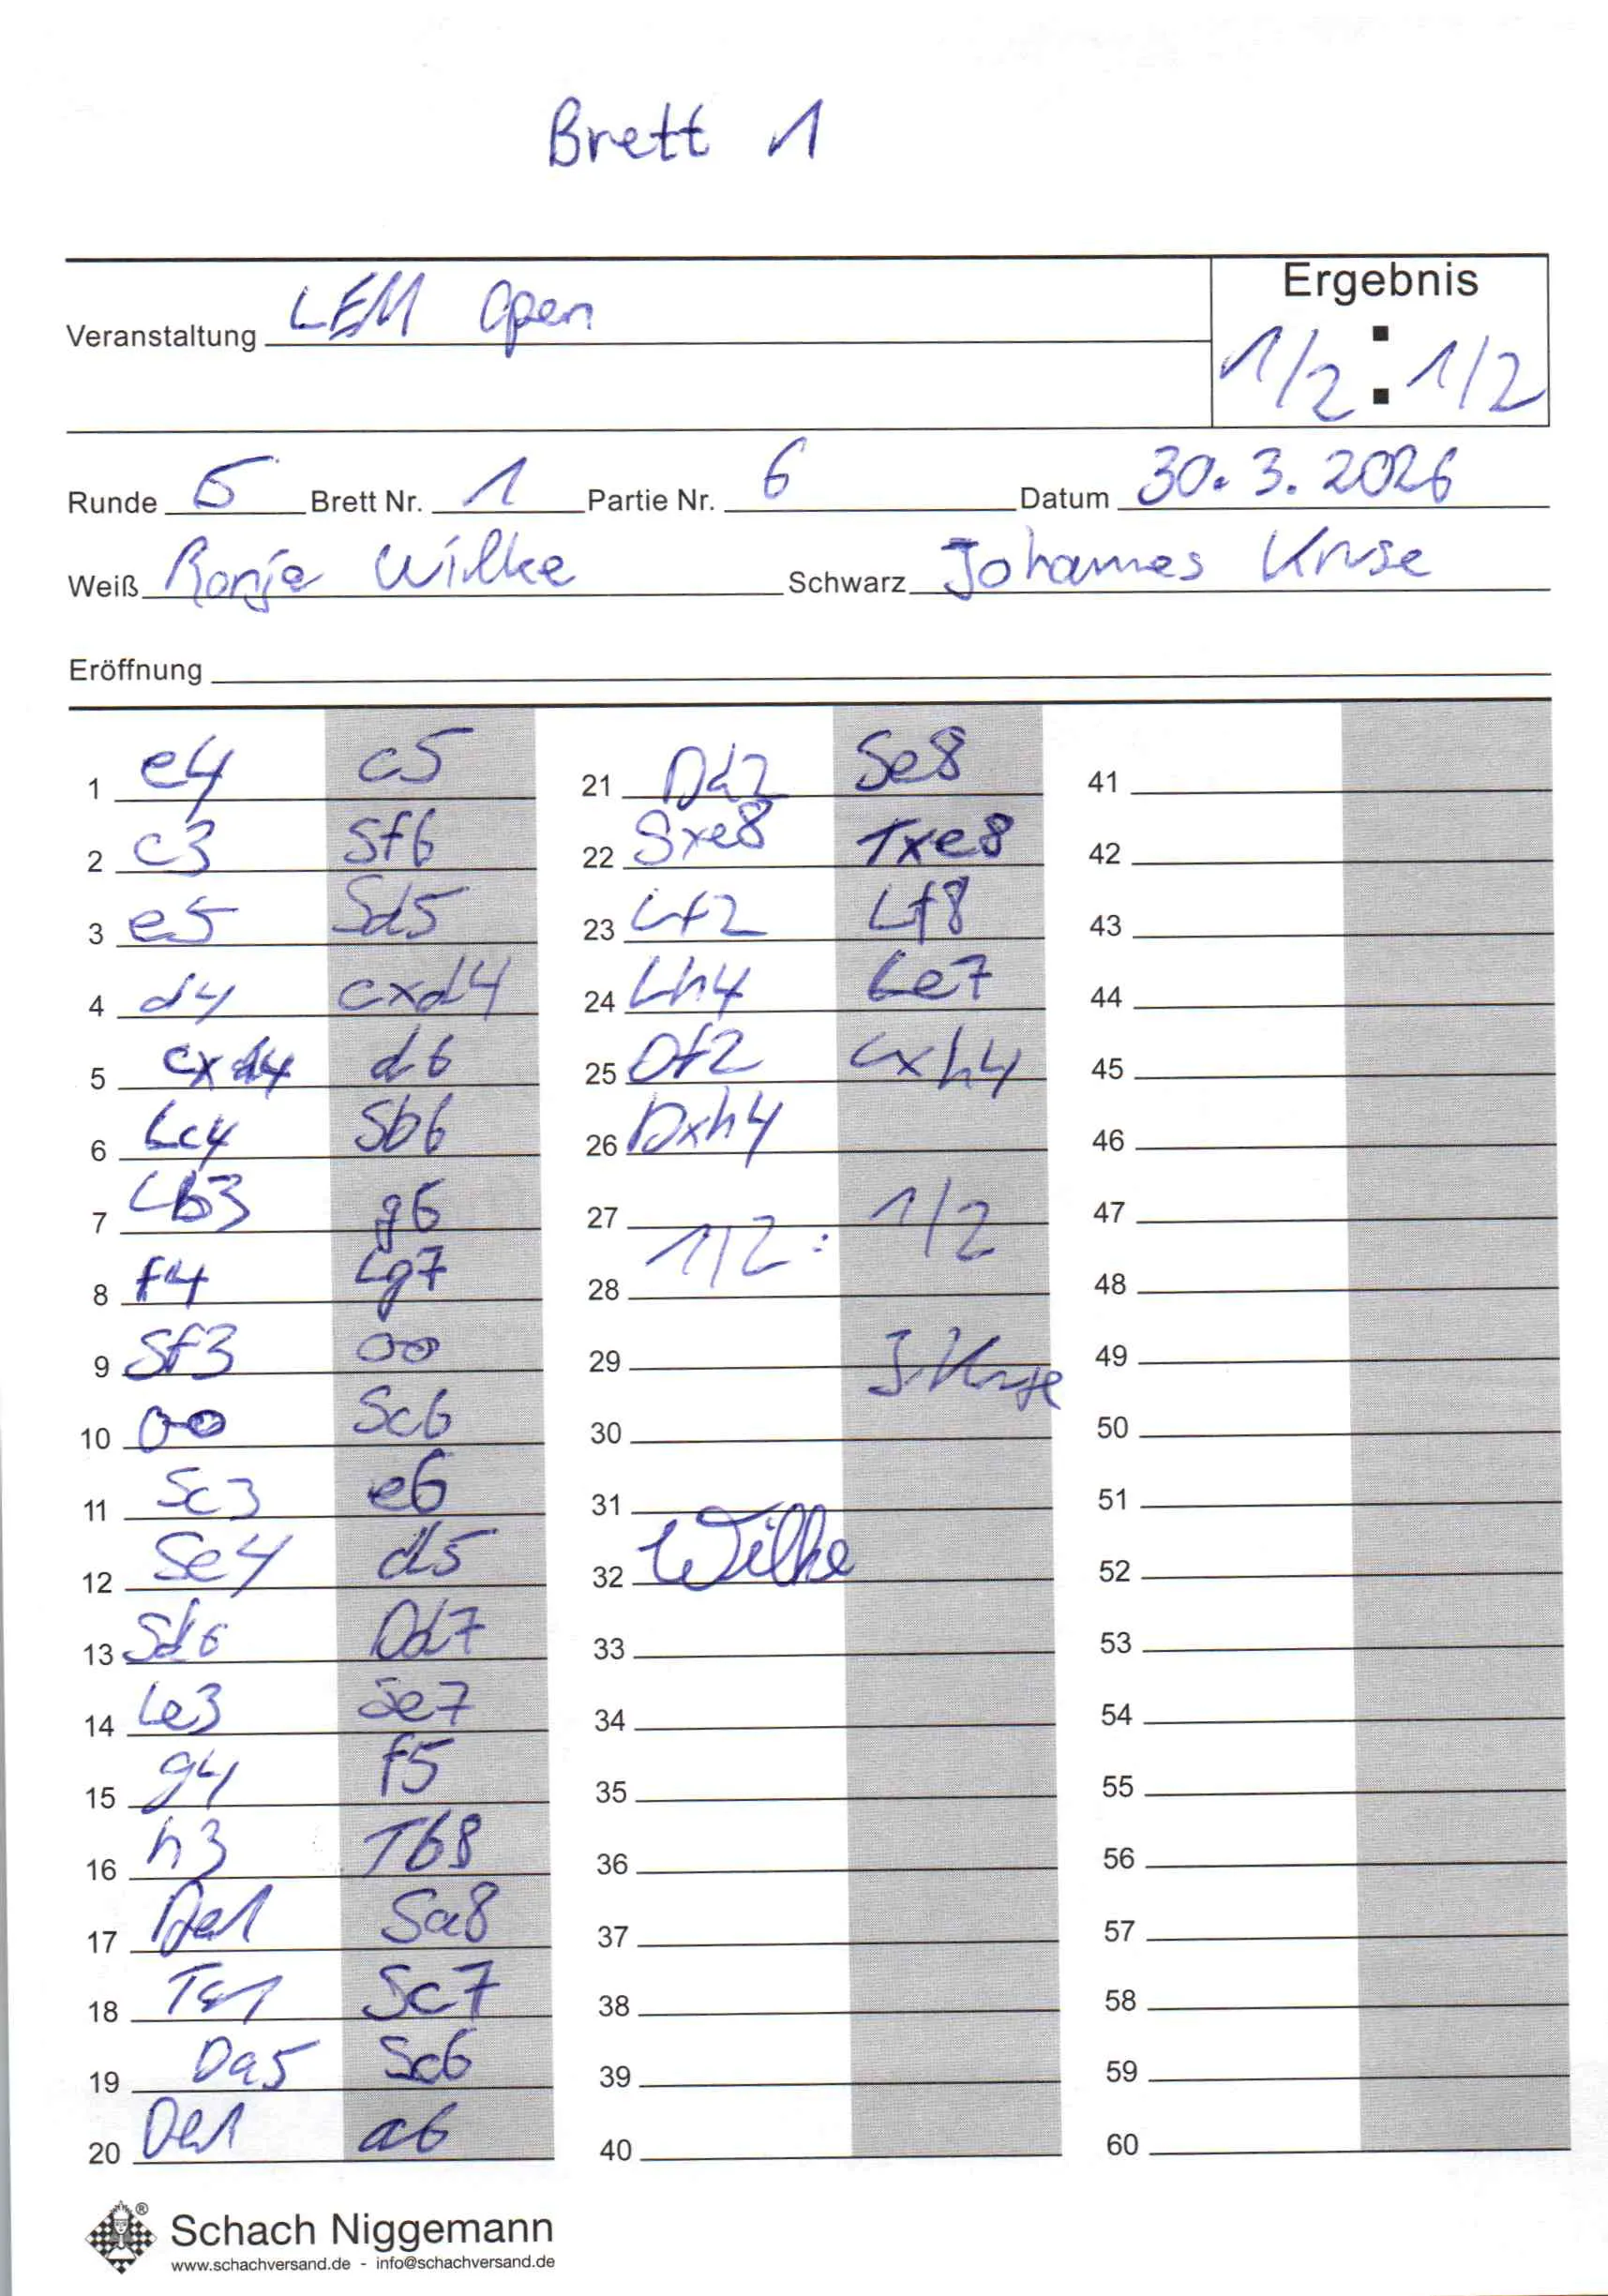 Brett 1
Ergebnis
Veranstaltung LEM Open
1/2 : 1/2
Runde 5 Brett Nr. 1 Partie Nr. 6 Datum 30.3.2026
Weiß Ronja Wilke Schwarz Johannes Kruse
Eröffnung
1 e4 c5
2 c3 Sf6
3 e5 Sd5
4 d4 cxd4
5 cxd4 d6
6 Lc4 Sb6
7 Lb3 g6
8 f4 Lg7
9 Sf3 00
10 00 Sc6
11 Sc3 e6
12 Se4 d5
13 Sd6 Dd7
14 Le3 Se7
15 g4 f5
16 h3 Tb8
17 De1 Sa8
18 Tc1 Sc7
19 Da5 Sc6
20 De1 a6
21 Dd2 Se8
22 Sxe8 Txe8
23 Lf2 Lf8
24 Lh4 Le7
25 Df2 Lxh4
26 Dxh4
27
1/2 : 1/2
28
29 J. Kruse
30
31
32 Wilke
33
34
35
36
37
38
39
40
41
42
43
44
45
46
47
48
49
50
51
52
53
54
55
56
57
58
59
60
® Schach Niggemann
www.schachversand.de - info@schachversand.de